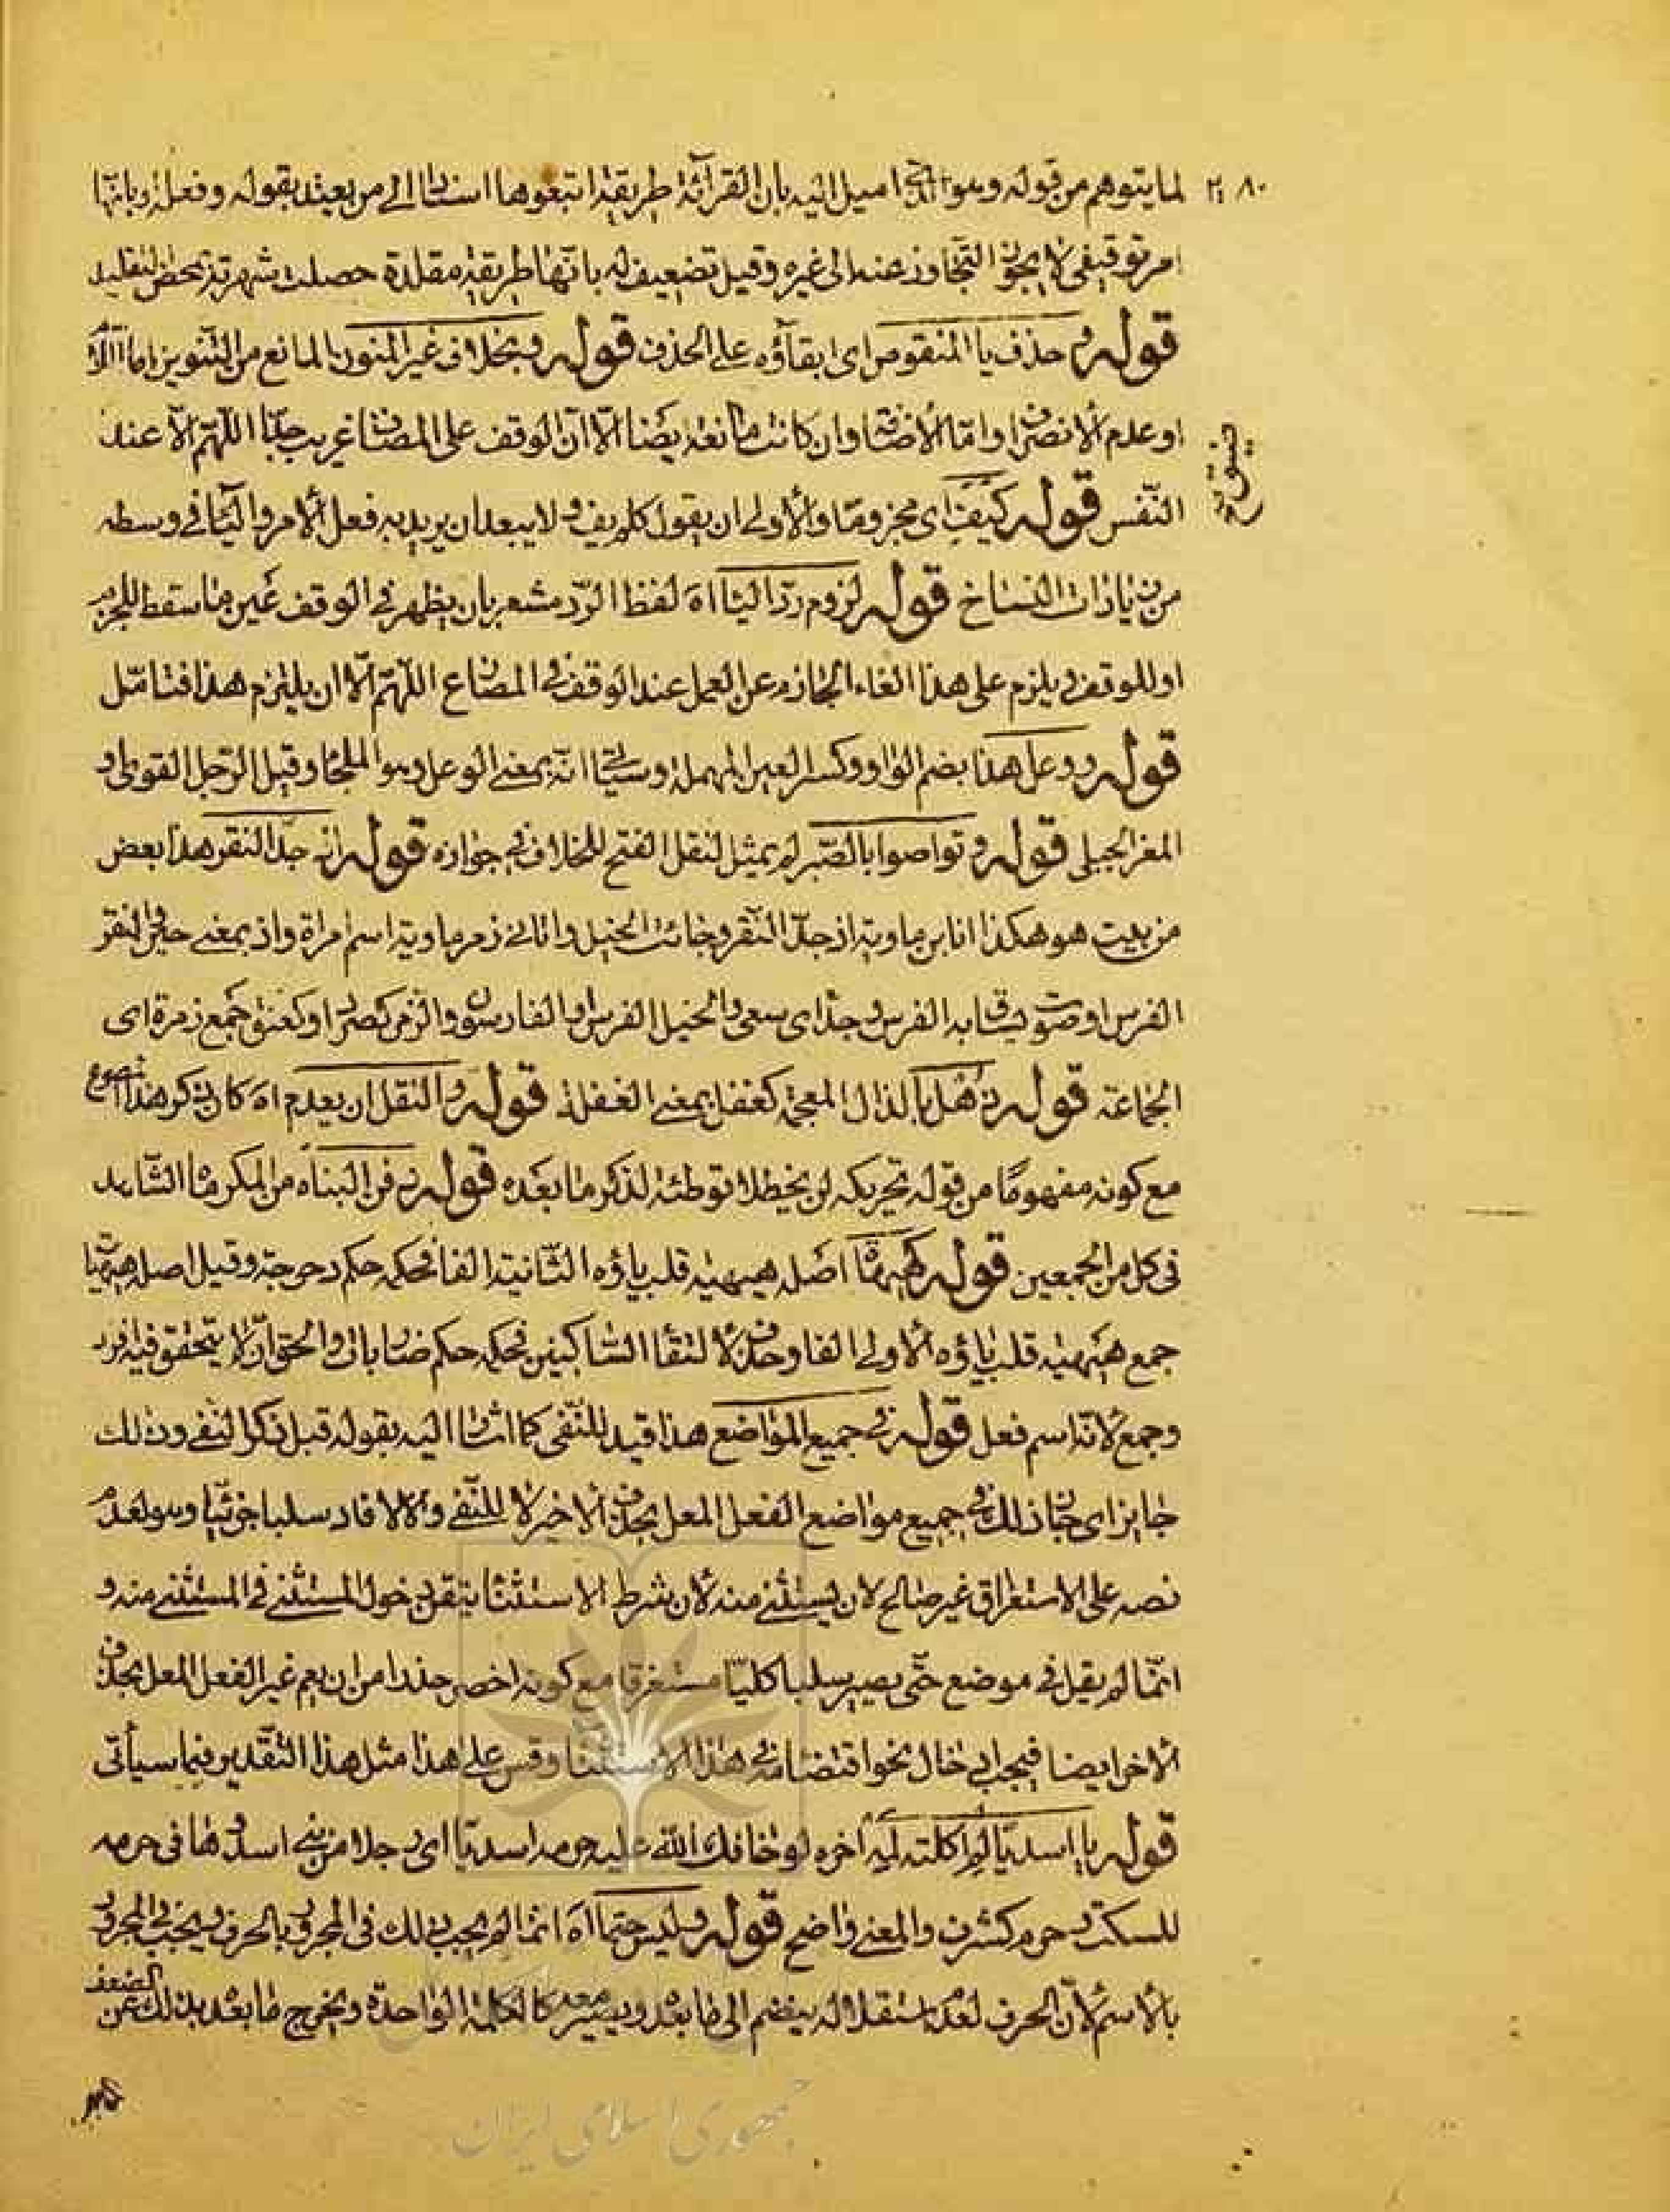 لما يتوهم من قوله وهو اميل اليه بان القرآئة طريقة اتبعوها استنا الى من بعيد بقوله وفعله وبانها
امر توقيفى لا يجوز التجاوز عنه الى غيره وقيل تضعيف له بانها طريقة مقلدة حصلت شهرته بمحض التقليد
قوله وحذف يا المنقوص اى ابقاؤه على الحذف قوله وبخلاف غير المنون المانع من التنوين اما اللام
او عدم الانصراف واما الاضافة وان كانت مانعة ايضا الا ان الوقف على المضاف غريب جدا اللهم الا عند
ضيق
النفس قوله كيف اى مجزوما والأولى ان يقول كلم يف ولا يبعد ان يريد به فعل الامر والياء فى وسطه
من زيادات النساخ قوله لزوم رد اليا اه لفظ الرد مشعر بان يظهر فى الوقف عين ما سقط للجزم
او للوقف ويلزم على هذا الغاء الجازم عن العمل عند الوقف فى المضارع اللهم الا ان يلتزم هذا فتامل
قوله ووعل هذا بضم الواو وكسر العين المهملة وسياتى انه بمعنى الوعل وهو الملجا وقيل الرجل القوى او
المغر الجبلى قوله وتواصوا بالصبر لم يمثل لنقل الفتح للخلاف فى جوازه قوله اذ جد النقر هذا بعض
من بيت هو هكذا انا ابن ماوية اذ جد النقر وجائت الخيل واثانى زمر ماوية اسم امراة واذ بمعنى حين والنقر
الفرس او صوت يساق به الفرس وجد اى سعى والخيل الفرس او الفارسون والزمر كصرد او كعنق جمع زمرة اى
الجماعة قوله ذهل بالذال المعجمة كغفل بمعنى الغفلة قوله والنقل ان يعدم اه كان ذكر هذا المصرع
مع كونه مفهوما من قوله تحريكه لن يخطلا توطئة لذكر ما بعده قوله دفن البناه من المكرماه الشاهد
فى كل من الجمعين قوله كهيهاة اصله هيهية قلب ياؤه الثانية الفا فحكمه حكم دحرجة وقيل اصله هيهيا
جمع هيهية قلب ياؤه الاولى الفا وحذف لالتقا الساكنين فحكمه حكم ضاربات والحق ان لا يتحقق فيه فرد
وجمع لانه اسم فعل قوله فى جميع المواضع هذا قيد للنفى كما اشار اليه بقوله قبل ذكر النفى وذلك
جايز اى جاز ذلك فى جميع مواضع الفعل المعل بحذف الاخر لا للنفى والا لافاد سلبا جزئيا وهو لعدم
نصه على الاستغراق غير صالح لان يستثنى منه لان شرط الاستثنا تيقن دخول المستثنى فى المستثنى منه و
انما لم يقل فى موضع حتى يصير سلبا كليا مستغرقا مع كونه اخصر حذرا من ان يعم غير الفعل المعل بحذف
الاخر ايضا فيجب ادخال نحو اقتضام فى هذا الاستثنا وقس على هذا مثل هذا التقدير فيما سياتى
قوله يا اسديا لم اكلته لمه آخره لو خافك الله عليه حرمه اسديا اى رجلا من بنى اسد وها فى حرمه
للسكت وحرم كشرف والمعنى واضح قوله وليس حتما اه انما لم يجب ذلك فى المجرور بالحرف ويجب فى المجرور
بالاسم لان الحرف لعدم استقلاله ينضم الى ما بعده ويصير معه كالكلمة الواحدة ويخرج ما بعده بذلك عن الضعف